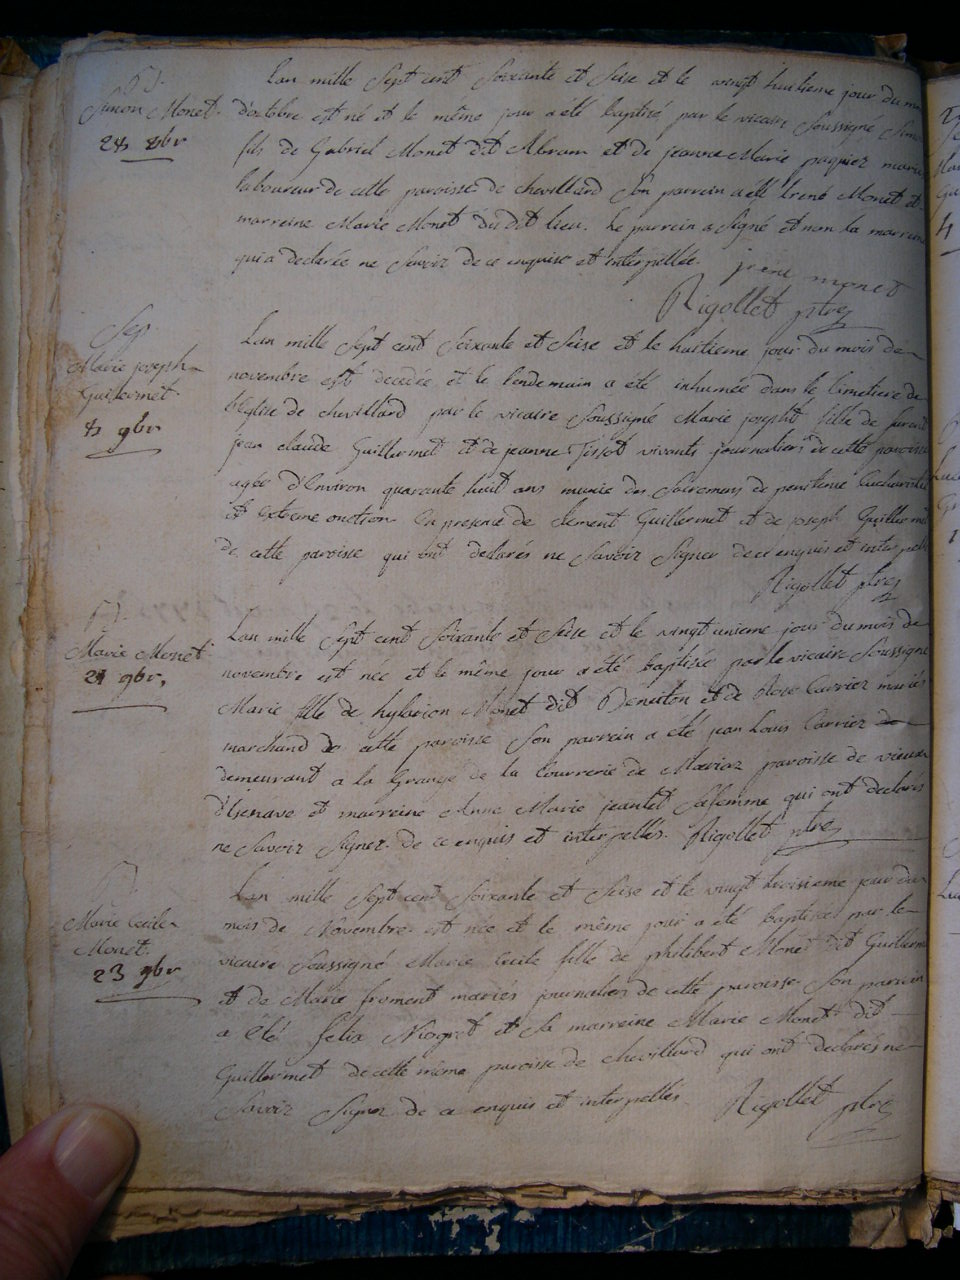 Simon Monet
28 8br
Lan mille Sept cent Soixante et Seise et le vingt huitieme jour du mois
d'octobre est né et le même jour a été baptisé par le vicaire Soussigné Simon
fils de Gabriel Monet dit Abram et de jeanne Marie paquier mariés
laboureur de cette paroisse de chevillard Son parrein a été Irené Monet et
marreine Marie Monet du dit lieu. Le parrein a Signé et non la marreine
qui a declarée ne Savoir de ce enquise et interpellée.
jréne monet
Rigollet ptre
Sep
Marie joseph
Guillermet
8 9br
Lan mille Sept cent Soixante et Seise et le huitieme jour du mois de
novembre est decedée et le lendemain a été inhumée dans le Cimetiere de
l'Eglise de chevillard par le vicaire Soussigné Marie josepht fille de
jean claude Guillermet et de jeanne Tissot vivants journaliers de cette paroisse
agée d'Environ quarante huit ans munie des Sacremens de penitence Eucharistie
et Extreme onction En presence de Clement Guillermet et de joseph Guillermet
de cette paroisse qui ont declarés ne Savoir Signer de ce enquis et interpellés
Rigollet ptre
Marie Monet
21 9br,
Lan mille Sept cent Soixante et Seise et le vingt unieme jour du mois de
novembre est née et le même jour a été baptisée par le vicaire Soussigné
Marie fille de hylarion Monet dit et de Rose Carrier mariés
marchand de cette paroisse Son parrein a été jean Louis Carrier
demeurant a la Grange de la Courrerie de Meriaz paroisse de vieux
d'Isenave et marreine Anne Marie jeantet Sa femme qui ont declarés
ne Savoir Signer de ce enquis et interpellés. Rigollet ptre
Marie Cecile
Monet
23 9br
Lan mille Sept cent Soixante et Seise et le vingt troisieme jour du
mois de Novembre est née et le même jour a été baptisée par le
vicaire Soussigné Marie Cecile fille de philibert Monet dit Guillermet
et de Marie froment mariés journaliers de cette paroisse Son parrein
a été felix Niogret et Sa marreine Marie Monet dit
Guillermet de cette même paroisse de Chevillard qui ont declarés ne
Savoir Signer de ce enquis et interpellés. Rigollet ptre